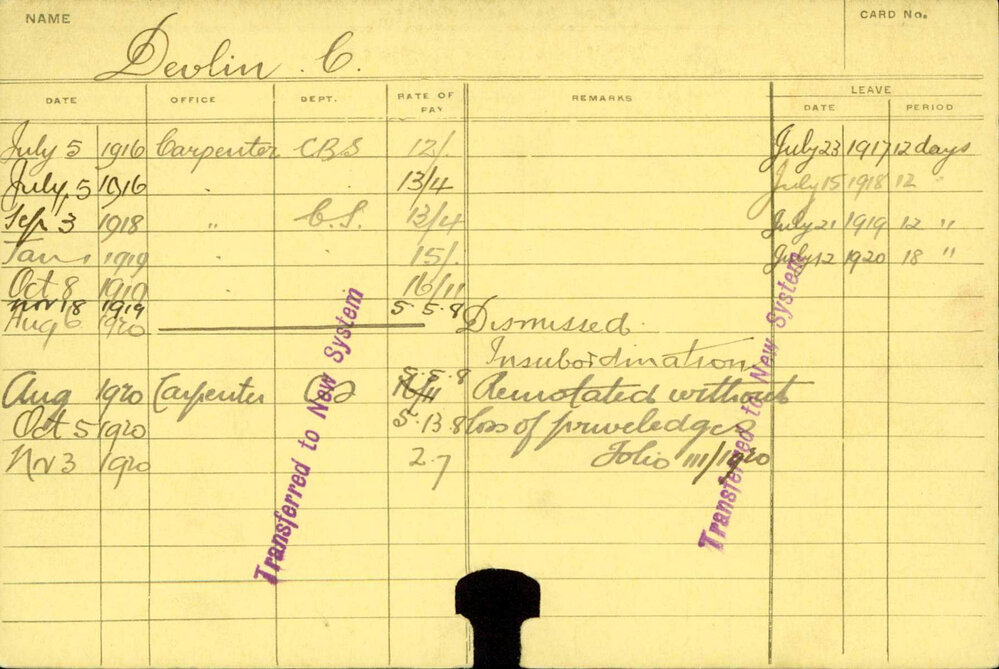 NAME CARD No.
Devlin C.
DATE OFFICE DEPT. RATE OF PAY REMARKS LEAVE
DATE PERIOD
July 5 1916 Carpenter C.B.S 12/. July 23 1917 12 days
July, 5 1916 " 13/4 July 15 1918 12 "
Sep 3 1918 " C.S. 13/4 July 21 1919 12 "
Jan 1 1919 " " 15/. July 12 1920 18 "
Oct 8 1919 16/11
Nov 18 1919 5 5.8
Aug 6 1920 Dismissed.
Insubordination
5.5.8
Aug 1920 Carpenter Reinstated without
Oct 5 1920 5.13.8 loss of priveledges
Nov 3 1920 2.7 Folio 111/1920
Transferred to New System
Transferred to New System